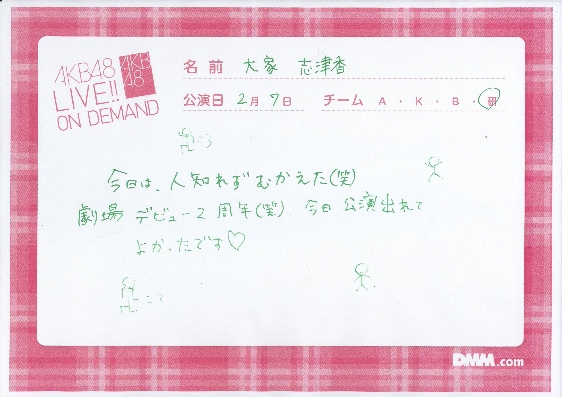 AKB48
LIVE!!
ON DEMAND
AKB
48
名前 大家 志津香
公演日 2月7日 チーム A・K・B・研
今日は、人知れずむかえた(笑)
劇場デビュー2周年(笑) 今日公演出れて
よかったです♡
DMM.com